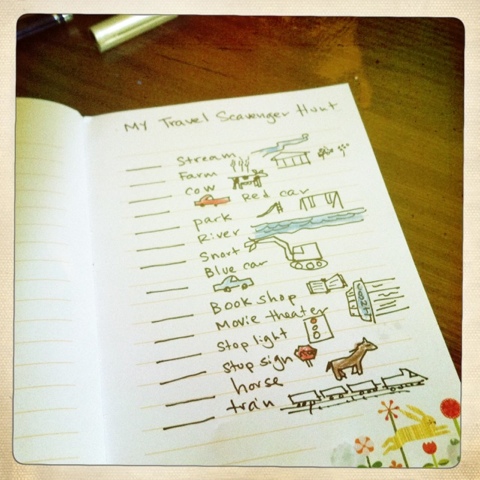 My Travel Scavenger Hunt
Stream
Farm
cow
Red car
park
River
Snort
Blue car
Book shop
Movie theater
stop light
stop sign
horse
train